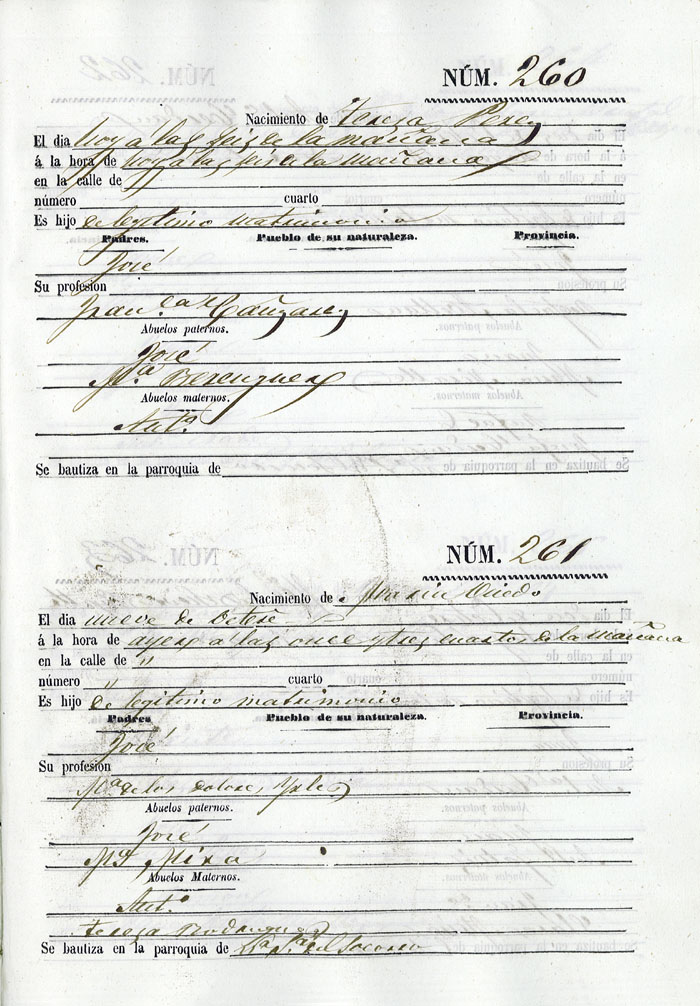 NÚM. 260
Nacimiento de Teresa Perez
El dia hoy a las seis de la mañana
á la hora de hoy a las seis de la mañana
en la calle de "
número cuarto
Es hijo de legitimo matrimonio
Padres. Pueblo de su naturaleza. Provincia.
José
Su profesion
Fran.ca Cañizares
Abuelos paternos.
José
M.ª Berenguer
Abuelos maternos.
Ant.º
Se bautiza en la parroquia de
NÚM. 261
Nacimiento de Oviedo
El dia nueve de Octbre
á la hora de ayer a las once y tres cuartos de la mañana
en la calle de "
número " cuarto
Es hijo de legitimo matrimonio
Padres Pueblo de su naturaleza. Provincia.
José
Su profesion
Mª de los dolores
Abuelos paternos.
José
Mª Mira
Abuelos Maternos.
Ant.º
Teresa Rodriguez
Se bautiza en la parroquia de del Socorro